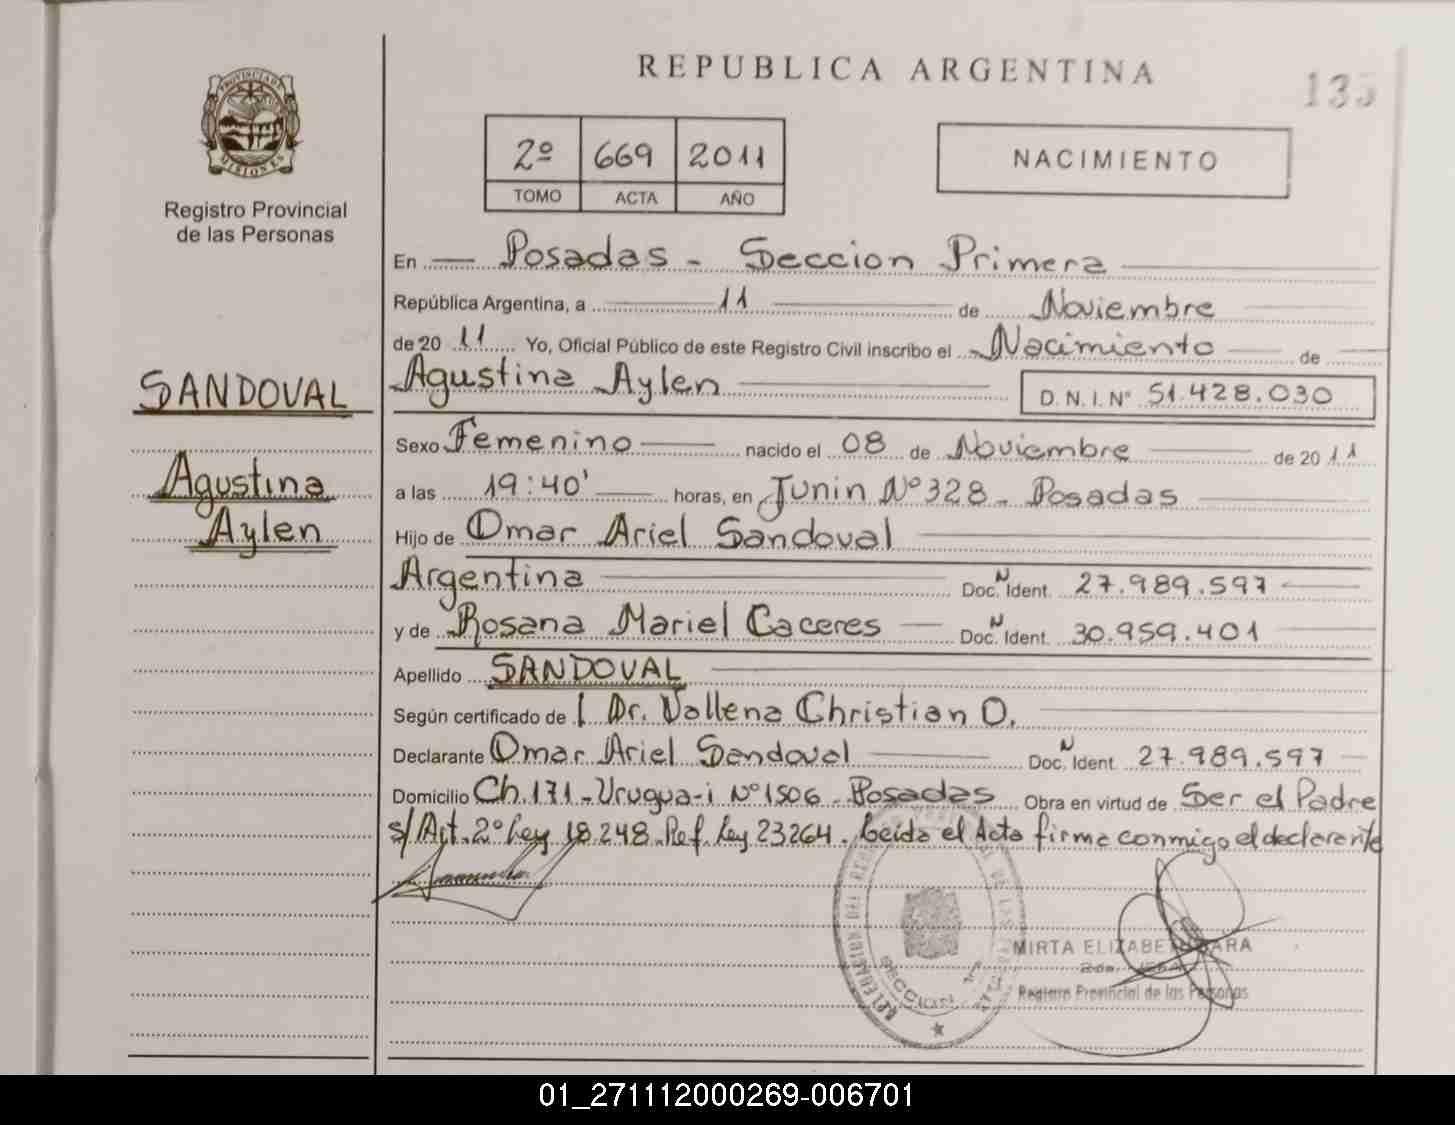 REPUBLICA ARGENTINA
PROVINCIA DE MISIONES
Registro Provincial
de las Personas
2º 669 2011
TOMO ACTA AÑO
NACIMIENTO
En Posadas - Seccion Primera
República Argentina, a 11 de Noviembre
de 20 11 Yo, Oficial Público de este Registro Civil inscribo el Nacimiento de
Agustina Aylen D.N.I. Nº 51.428.030
SANDOVAL
Agustina
Aylen
Sexo Femenino nacido el 08 de Noviembre de 20 11
a las 19:40' horas, en Junin Nº 328 - Posadas
Hijo de Omar Ariel Sandoval
Argentina Doc. N Ident. 27.989.597
y de Rosana Mariel Caceres Doc. N Ident. 30.959.401
Apellido SANDOVAL
Según certificado de l Dr. Vallena Christian O.
Declarante Omar Ariel Sandoval Doc. N Ident. 27.989.597
Domicilio Ch. 171 - Urugua-i Nº 1506 - Posadas Obra en virtud de Ser el Padre
s/Art. 2º Ley 18.248. Ref. Ley 23264. Leida el Acta firma conmigo el declarante
MIRTA ELIZABE ARA
Registro Provincial de las Personas
SECCION 1ª
01_271112000269-006701